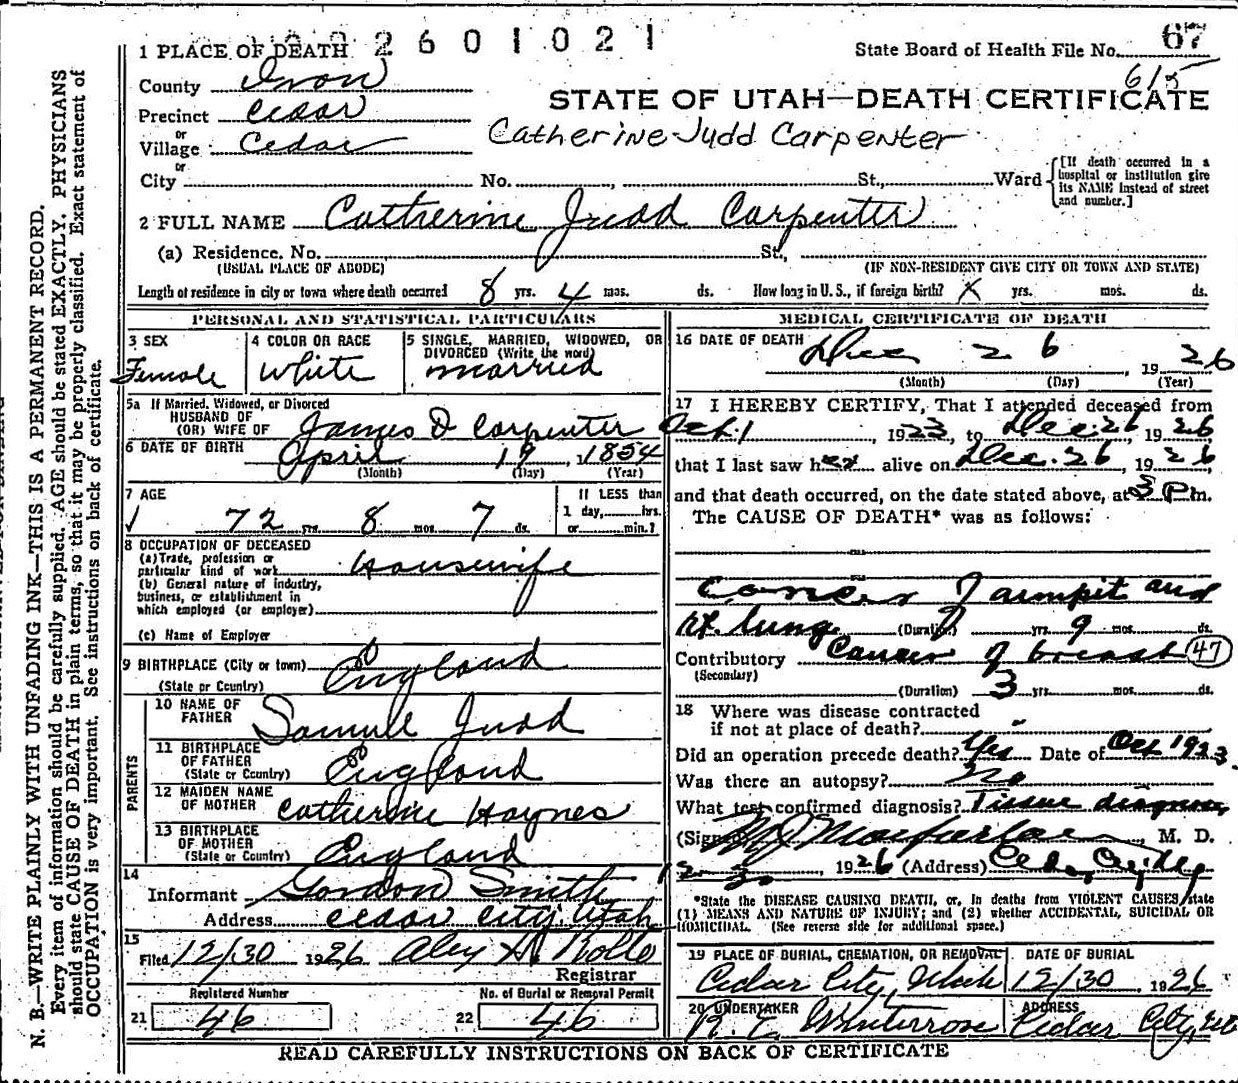 2601021
1 PLACE OF DEATH
State Board of Health File No. 67
615
County Iron
STATE OF UTAH—DEATH CERTIFICATE
Precinct Cedar
or
Village Cedar
Catherine Judd Carpenter
or
City No. , St., Ward
[If death occurred in a hospital or institution give its NAME instead of street and number.]
2 FULL NAME Catherine Judd Carpenter
(a) Residence. No. St.,
(USUAL PLACE OF ABODE) (IF NON-RESIDENT GIVE CITY OR TOWN AND STATE)
Length of residence in city or town where death occurred 8 yrs. 4 mos. ds. How long in U. S., if foreign birth? X yrs. mos. ds.
PERSONAL AND STATISTICAL PARTICULARS
3 SEX
Female
4 COLOR OR RACE
White
5 SINGLE, MARRIED, WIDOWED, OR
DIVORCED (Write the word)
married
5a If Married, Widowed, or Divorced
HUSBAND OF
(OR) WIFE OF James D Carpenter
6 DATE OF BIRTH April 19, 1854
(Month) (Day) (Year)
7 AGE
72 yrs. 8 mos. 7 ds.
If LESS than
1 day, hrs.
or min.?
8 OCCUPATION OF DECEASED
(a) Trade, profession or
particular kind of work Housewife
(b) General nature of industry,
business, or establishment in
which employed (or employer)
(c) Name of Employer
9 BIRTHPLACE (City or town) England
(State or Country)
PARENTS
10 NAME OF
FATHER Samuel Judd
11 BIRTHPLACE
OF FATHER
(State or Country) England
12 MAIDEN NAME
OF MOTHER Catherine Haynes
13 BIRTHPLACE
OF MOTHER
(State or Country) England
14
Informant Gordon Smith
Address Cedar City, Utah
15
Filed 12/30 1926 Alex H. Rollo
Registrar
Registered Number
21 46
No. of Burial or Removal Permit
22 46
MEDICAL CERTIFICATE OF DEATH
16 DATE OF DEATH Dec 26, 1926
(Month) (Day) (Year)
17 I HEREBY CERTIFY, That I attended deceased from
Oct. 1, 1923, to Dec. 26, 1926,
that I last saw her alive on Dec. 26, 1926,
and that death occurred, on the date stated above, at 3 P m.
The CAUSE OF DEATH* was as follows:
Cancer of armpit and
rt. lung (Duration) yrs. 9 mos. ds.
Contributory Cancer of breast 47
(Secondary)
(Duration) 3 yrs. mos. ds.
18 Where was disease contracted
if not at place of death?
Did an operation precede death? Yes Date of Oct 1923
Was there an autopsy? No
What test confirmed diagnosis? Tissue diagnosis
(Signed) Macfarlane, M. D.
, 1926 (Address)
*State the DISEASE CAUSING DEATH, or, in deaths from VIOLENT CAUSES, state
(1) MEANS AND NATURE OF INJURY; and (2) whether ACCIDENTAL, SUICIDAL OR
HOMICIDAL. (See reverse side for additional space.)
19 PLACE OF BURIAL, CREMATION, OR REMOVAL
Cedar City, Utah
DATE OF BURIAL
12/30, 1926
20 UNDERTAKER
R. E. Winterrose
ADDRESS
Cedar City, Ut
READ CAREFULLY INSTRUCTIONS ON BACK OF CERTIFICATE
N. B.—WRITE PLAINLY WITH UNFADING INK—THIS IS A PERMANENT RECORD.
Every item of information should be carefully supplied. AGE should be stated EXACTLY. PHYSICIANS
should state CAUSE OF DEATH in plain terms, so that it may be properly classified. Exact statement of
OCCUPATION is very important. See instructions on back of certificate.